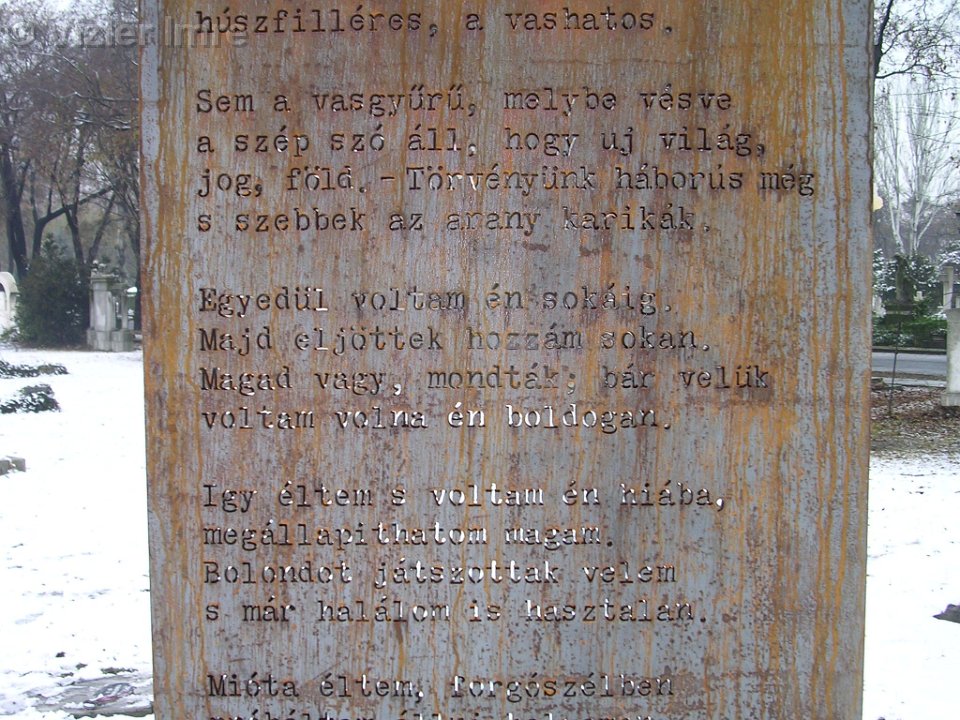 © Vizler Imre
húszfilléres, a vashatos.
Sem a vasgyűrű, melybe vésve
a szép szó áll, hogy uj világ,
jog, föld. - Törvényünk háborús még
s szebbek az arany karikák.
Egyedül voltam én sokáig.
Majd eljöttek hozzám sokan.
Magad vagy, mondták; bár velük
voltam volna én boldogan.
Igy éltem s voltam én hiába,
megállapithatom magam.
Bolondot játszottak velem
s már halálom is hasztalan.
Mióta éltem, forgószélben
próbáltam állni helyemen.